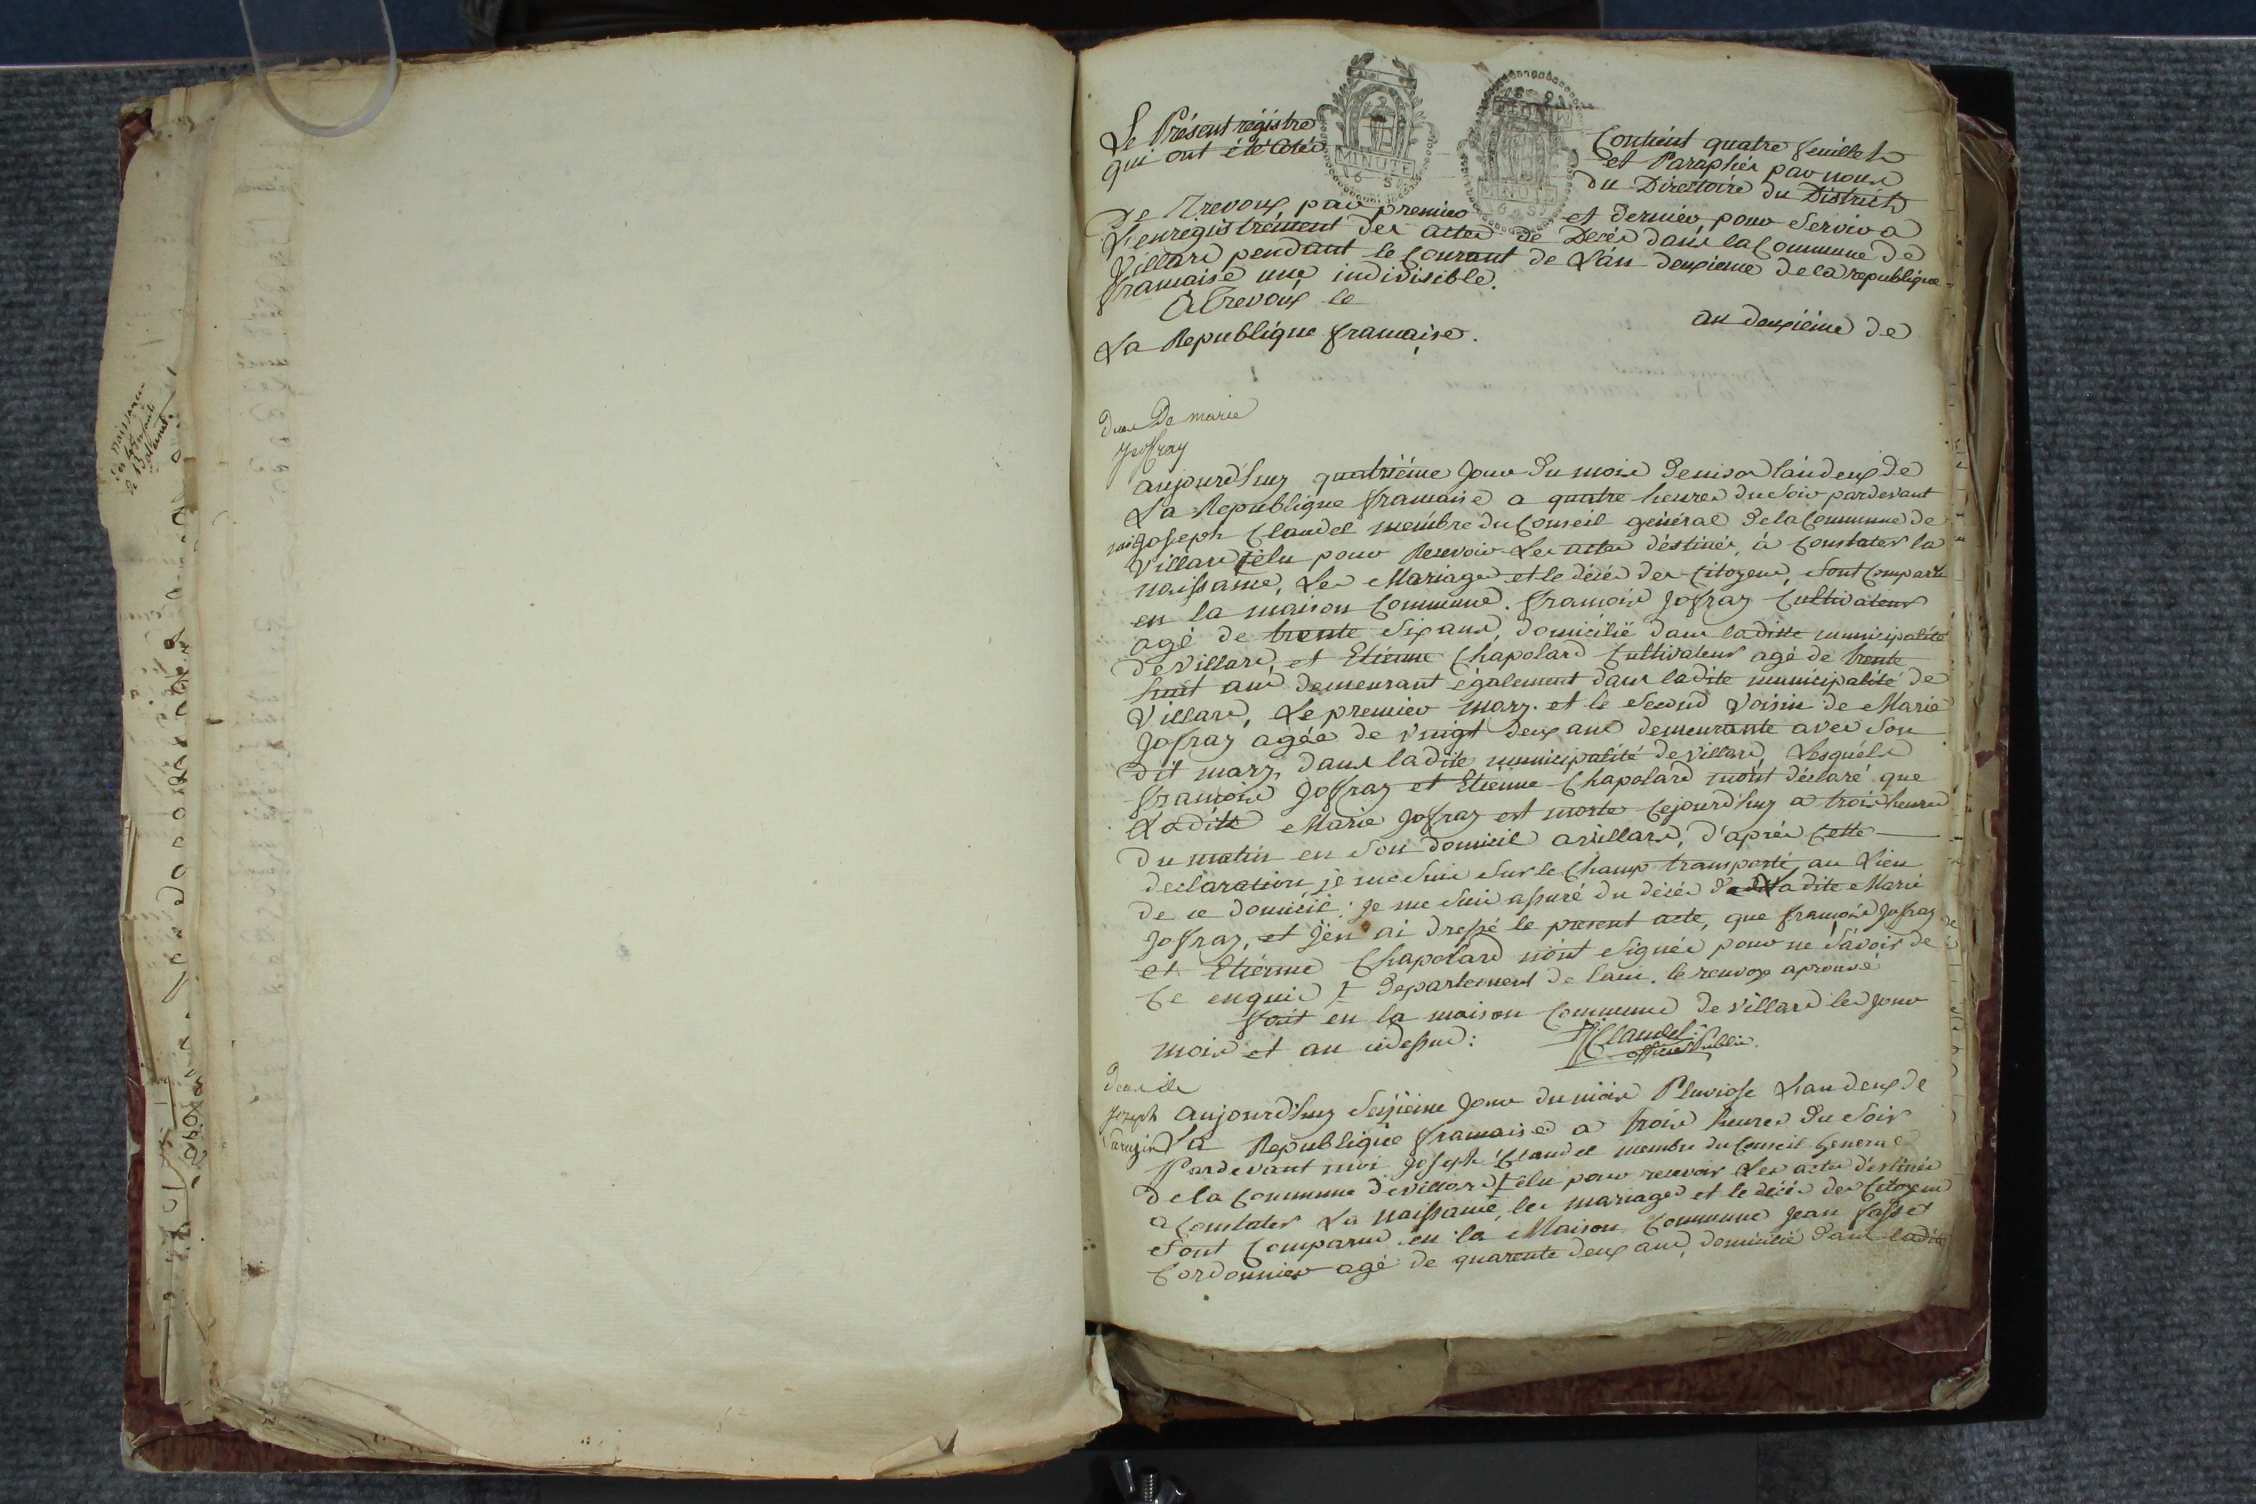 Le Présent régistre Contient quatre feuillets
qui ont été Cotés et Paraphés par nous
du Directoire du District
De Trevoux par premier et dernier pour Servir a
L'enregistrément des actes de Decés dans la Commune de
Villars pendant le Courant de L'an deuxieme de la republique
francaise une indivisible.
A Trevoux le an deuxième de
La Republique francaise.
MINUTE
MINUTE
Deces De marie
Joffray
aujourd'huy quatriéme Jour du mois de nivos l'an deux de
La Republique francaise a quatre heures du Soir pardevant
moi Joseph Claudel membre du Conseil général de la Commune de
Villars élu pour Recevoir Les actes déstinés, à Constater la
naissance, Les Mariages et le décés des Citoyens, Sont Comparu
en la maison Commune. francois Joffray Cultivateur
agé de trente Six ans, domicilié dans laditte municipalité
de Villars, et Etienne Chapolard Cultivateur agé de trente
huit ans demeurant également dans ladite municipalité de
Villars, Le premier mary. et le Second Voisin de Marie
Joffray agée de vingt deux ans demeurante avec Son
dit mary, dans ladite municipalité de Villars, Lesquéls
francois Joffray et Etienne Chapolard m'ont déclaré que
Laditte Marie Joffray est morte Cejourd'huy a trois heures
du matin en Son domicil a Villars, d'aprés Cette
declaration, je me Suis Sur le Champ transporté, au Lieu
de ce domicil; Je me Suis assuré du décés de Ladite Marie
Joffray, et J'en ai dressé le present acte, que françois Joffray
et Etienne Chapolard n'ont Signés pour ne Savoir de
Ce enquis Departement de Lain. le renvoy aprouvé
fait en la maison Commune de Villars les Jour
mois et an cidessus:
J Claudel
officier Public.
Deces de
Joseph
aujourd'huy Seizième Jour du mois Pluviose L'an deux de
La Republique francaise a trois heures du Soir
Pardevant moi Joseph Claudel membre du Conseil General
de la Commune de Villars élu pour recevoir Les actes déstinés
a Constater La naissance, les mariages et le décés des Citoyens
Sont Comparus en la Maison Commune Jean
Cordonnier agé de quarente deux ans, domicilié dans ladite